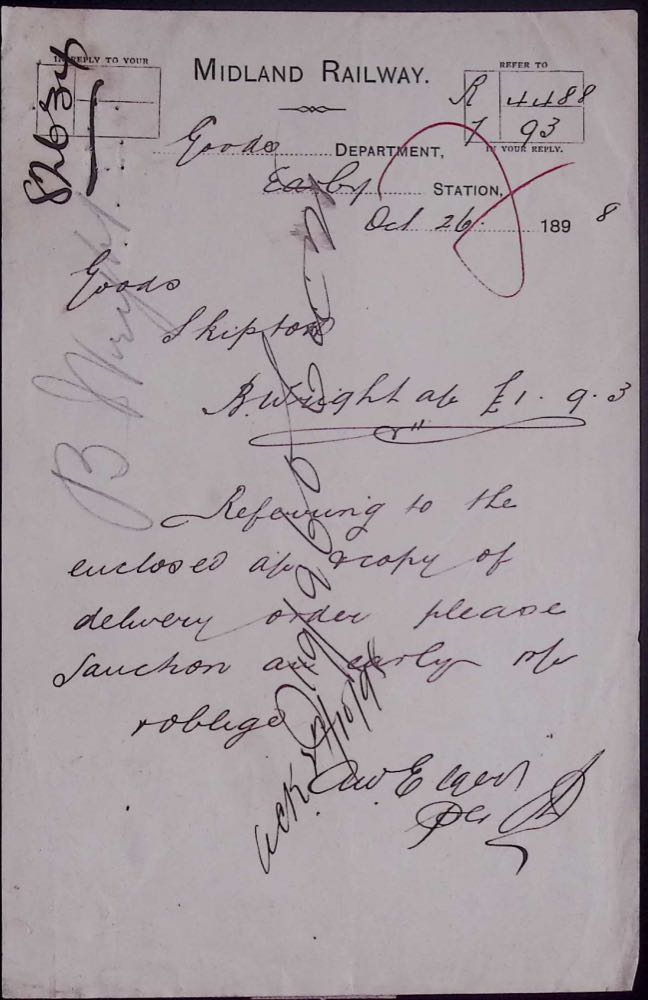 IN REPLY TO YOUR
82634
MIDLAND RAILWAY.
REFER TO
R 4488
7 93
IN YOUR REPLY.
Goods DEPARTMENT,
Earby STATION,
Oct 26. 1898
Goods
Skipton
B. Wright a/c £1. 9. 3
Referring to the
enclosed a/c & copy of
delivery order please
Sanction an early
& oblige
B Wright
ack. 27/10/98